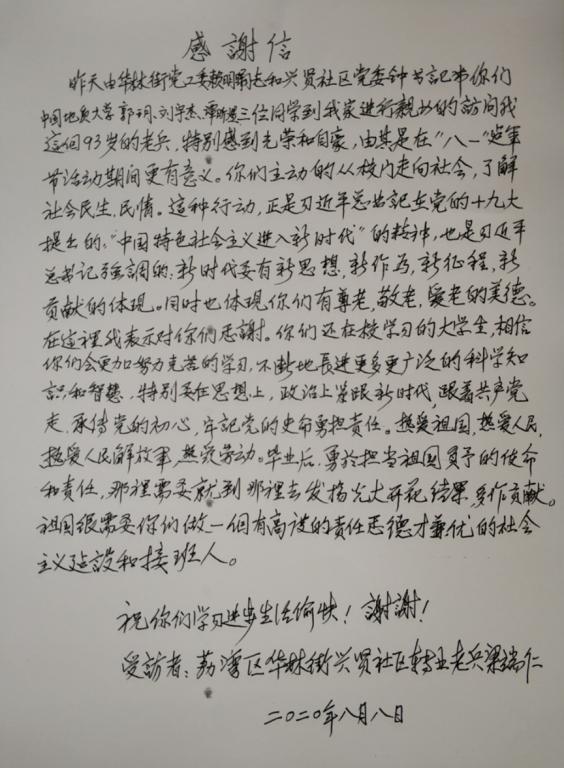 感謝信
昨天由华林街党工委赖明同志和兴贤社区党委钟书記带你们
中国地质大学郭玥、刘宇杰、三位同学到我家進行親切的訪问我
這個93岁的老兵，特别感到光荣和自豪，由其是在“八一”建軍
节活动期间更有意义。你们主动的从校门走向社会，了解
社会民生，民情。這种行动，正是习近平总书記在党的十九大
提出的：“中国特色社会主义進入新时代”的精神，也是习近平
总书記强調的：新时代要有新思想，新作为，新征程，新
贡献的体现。同时也体现你们有尊老，敬老，爱老的美德。
在這裡我表示对你们感謝。你们还在校学习的大学生，相信
你们会更加努力克苦的学习，不断地長進更多更广泛的科学知
識和智慧，特别要在思想上，政治上紧跟新时代，跟着共产党
走，承传党的初心，牢記党的史命勇担责任。热爱祖国，热爱人民，
热爱人民解放軍，热爱劳动。毕业后，勇於担当祖国赋予的使命
和責任，那裡需要就到那裡去发扬光大开花结果，多作贡献。
祖国很需要你们做一個有高度的责任感德才兼优的社会
主义建設和接班人。
祝你们学习進步生活愉快！謝謝！
受訪者：荔湾区华林街兴贤社区转业老兵梁瑞仁
二〇二〇年八月八日